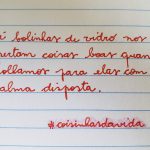 é bolinhas de vidro nos
ertam coisas boas quan
ollamos para elas com
alma disposta.
#coisinhasdavida